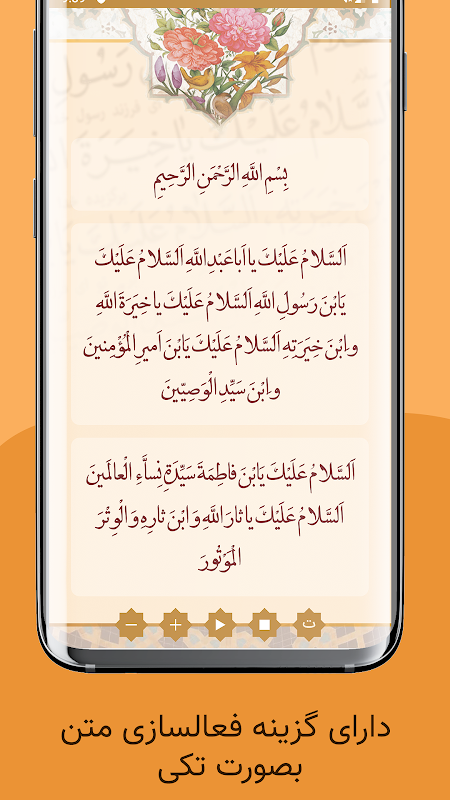 بِسْمِ اللَّهِ الرَّحْمَنِ الرَّحِيمِ
اَلسَّلامُ عَلَيْكَ يا اَبا عَبْدِ اللَّهِ اَلسَّلامُ عَلَيْكَ
يَابْنَ رَسُولِ اللَّهِ اَلسَّلامُ عَلَيْكَ يا خِيَرَةَ اللَّهِ
وابْنَ خِيَرَتِهِ اَلسَّلامُ عَلَيْكَ يَابْنَ اَميرِ الْمُؤْمِنينَ
وابْنَ سَيِّدِ الْوَصِيّينَ
اَلسَّلامُ عَلَيْكَ يَابْنَ فاطِمَةَ سَيِّدَةِ نِساَّءِ الْعالَمينَ
اَلسَّلامُ عَلَيْكَ يا ثارَ اللَّهِ وَابْنَ ثارِهِ وَالْوِتْرَ
الْمَوْتُورَ
ت
دارای گزینه فعالسازی متن
بصورت تکی